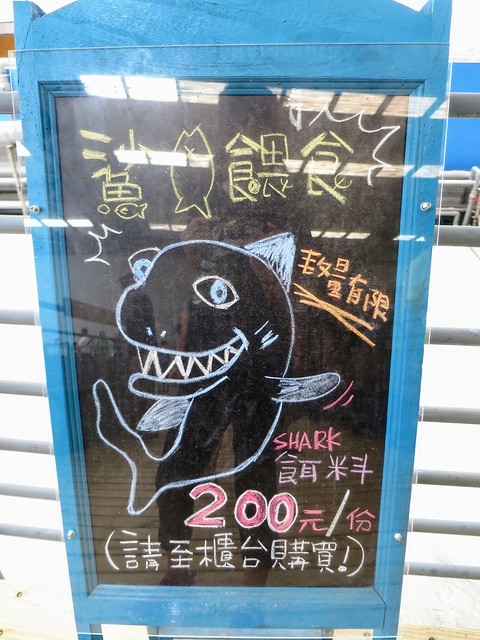 鯊魚餵食
数量有限
SHARK
餌料
200元/份
(請至櫃台購買!)